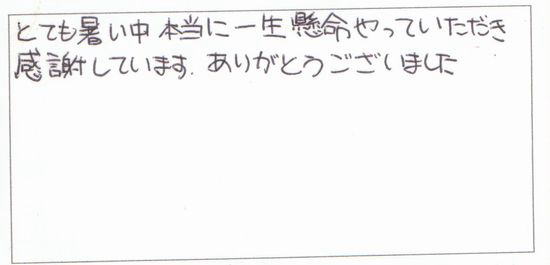 とても暑い中本当に一生懸命やっていただき
感謝しています。ありがとうございました